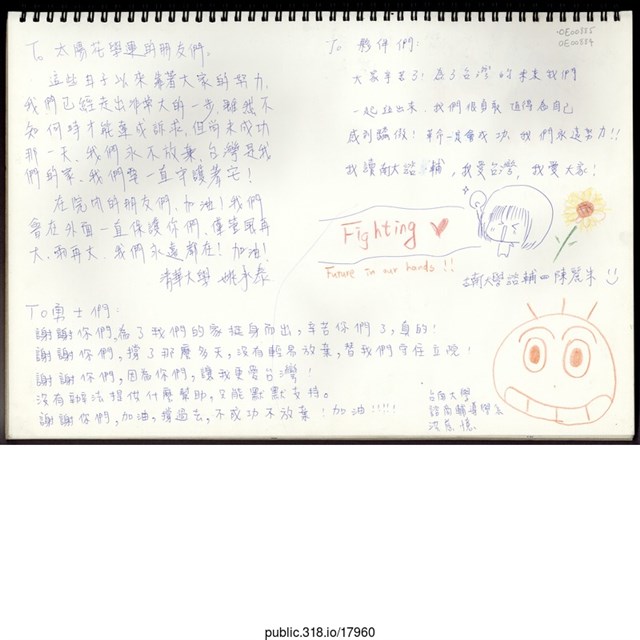 To 太陽花學運的朋友們,
這些日子以來靠著大家的努力,
我們已經走出非常大的一步, 雖然不
知何時才能達成訴求, 但尚未成功
那一天, 我們永不放棄, 台灣是我
們的家, 我們要一直守護著它!
在院內的朋友們, 加油! 我們
會在外面一直保護你們, 儘管風再
大、雨再大, 我們永遠都在! 加油!
清華大學
To 夥伴們:
大家辛苦了! 為了台灣的未來我們
一起站出來, 我們很勇敢, 值得為自己
感到驕傲! 革命一定會成功, 我們永遠努力!!
我讀南大諮輔, 我愛台灣, 我愛大家!
Fighting
Future in our hands !!
台南大學諮輔
OE00335
OE00334
To 勇士們:
謝謝你們, 為了我們的家挺身而出, 辛苦你們了, 真的!
謝謝你們, 撐了那麼多天, 沒有輕易放棄, 替我們守住立院!
謝謝你們, 因為你們, 讓我更愛台灣!
沒有辦法提供什麼幫助, 只能默默支持。
謝謝你們, 加油, 撐過去, 不成功不放棄! 加油!!!!!
台南大學
諮商輔導學系
public.318.io/17960